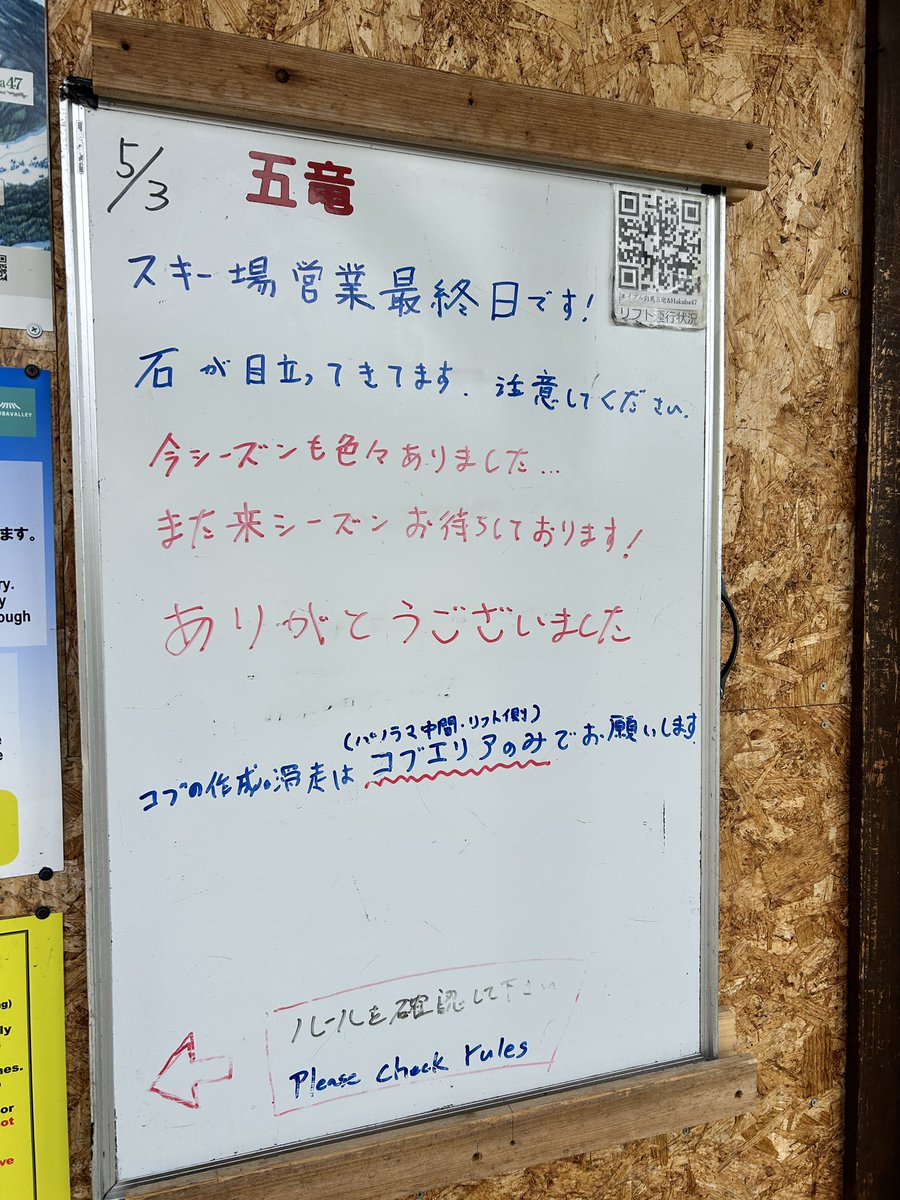 5/3 五竜
スキー場営業最終日です！
石が目立ってきてます. 注意してください.
今シーズンも色々ありました...
また来シーズンお待ちしております！
ありがとうございました
(パノラマ中間・リフト側)
コブの作成。滑走は コブエリアのみでお願いします
ルールを確認して下さい
Please check rules
エイブル白馬五竜&Hakuba47
リフト運行状況
a47
UBAVALLEY
ます。
ry.
y
ough
e
e
ng)
ly
nes.
or
ot
ve